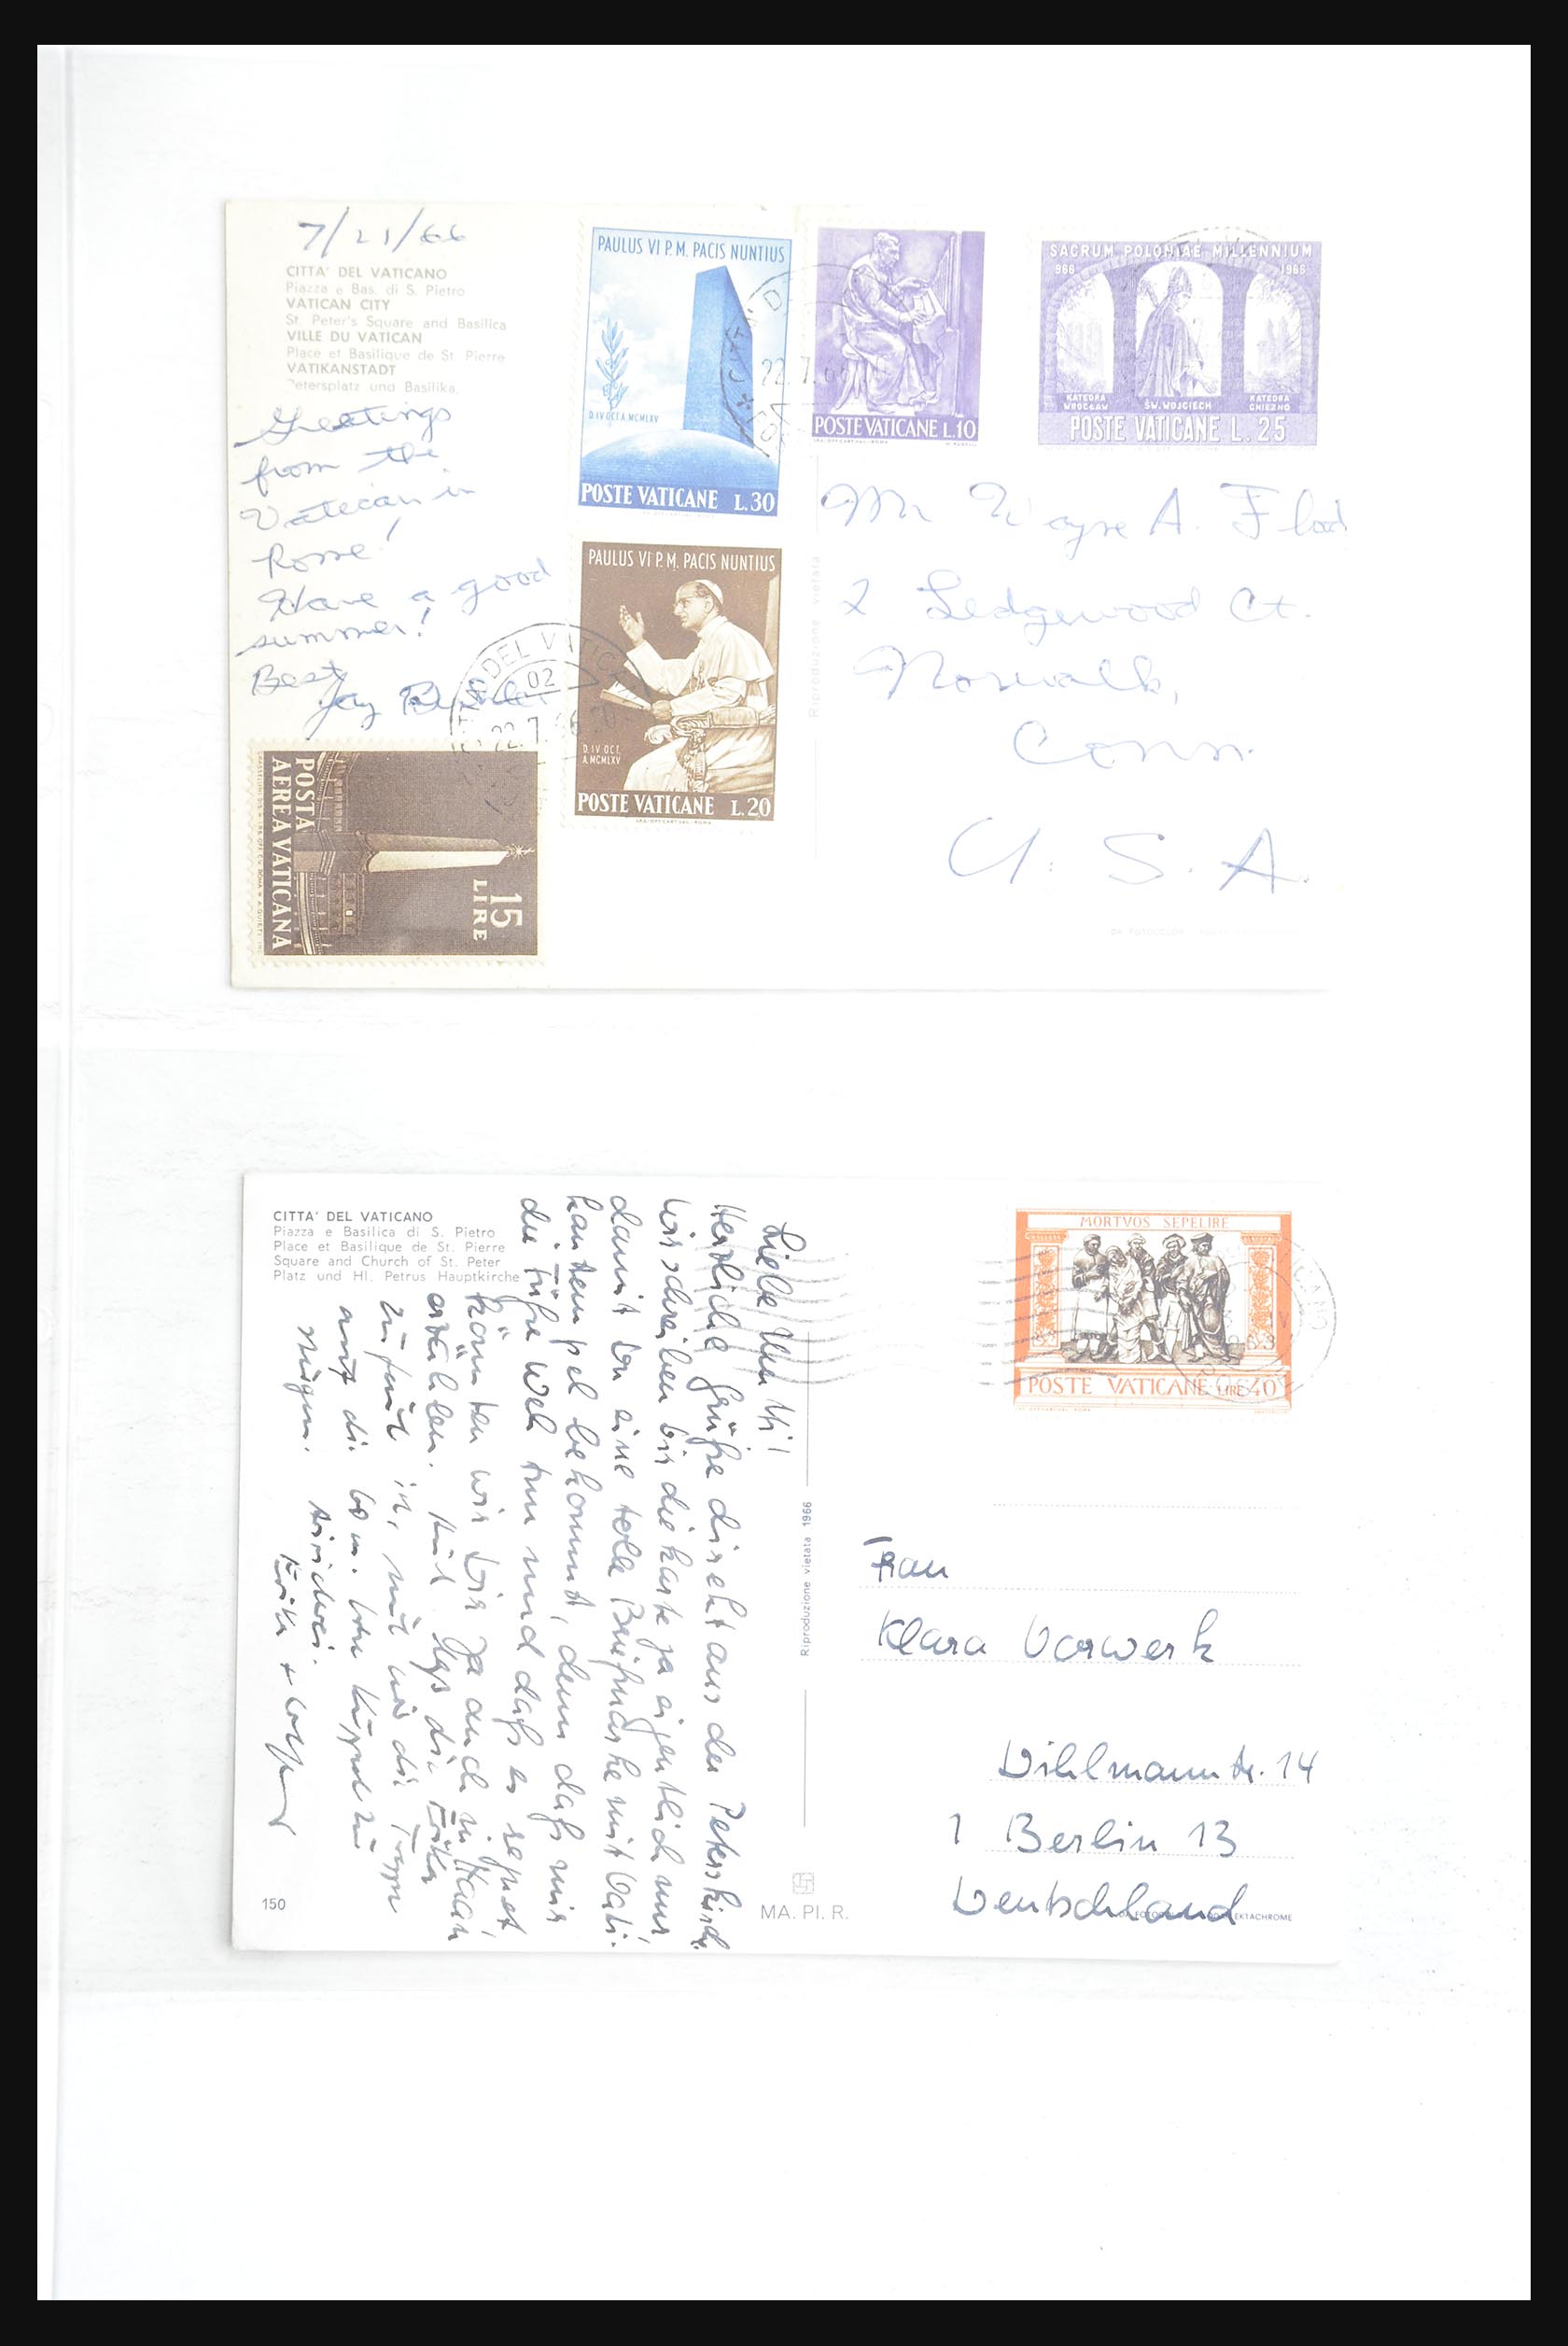 7/21/66
CITTA' DEL VATICANO
Piazza e Bas. di S. Pietro
VATICAN CITY
St. Peter's Square and Basilica
VILLE DU VATICAN
Place et Basilique de St. Pierre
VATIKANSTADT
Petersplatz und Basilika.
Greetings
from the
Vatican in
Rome!
Have a good
summer!
Best
Jay
PAULUS VI P.M. PACIS NUNTIUS
D. IV OCT. A. MCMLXV
POSTE VATICANE L.30
POSTE VATICANE L.10
SACRUM POLONIAE MILLENNIUM
966 1966
KATEDRA WROCŁAW ŚW. WOJCIECH KATEDRA GNIEZNO
POSTE VATICANE L. 25
PAULUS VI P.M. PACIS NUNTIUS
D. IV OCT.
A. MCMLXV
POSTE VATICANE L.20
DEL VATIC
02
22.7.66
22.7.
POSTA
AEREA VATICANA
15
LIRE
Riproduzione vietata
Mr Wayne A.
2 Ledgewood Ct.
Norwalk,
Conn.
U. S. A.
CITTA' DEL VATICANO
Piazza e Basilica di S. Pietro
Place et Basilique de St. Pierre
Square and Church of St. Peter
Platz und Hl. Petrus Hauptkirche
Liebe
Herzliche Grüße direkt aus der Peterskirche.
Wir schreiben Dir die Karte ja eigentlich nur,
damit Du eine tolle Briefmarke mit Vati-
kanstempel bekommst, denn daß mir
die Füße weh tun und daß es regnet,
könnten wir Dir ja auch zu Hause
erzählen.
Erika +
MORTVOS SEPELIRE
POSTE VATICANE LIRE 40
Riproduzione vietata 1966
Frau
Klara Vorwerk
14
1 Berlin 13
Deutschland
EKTACHROME
150
MA. PI. R.